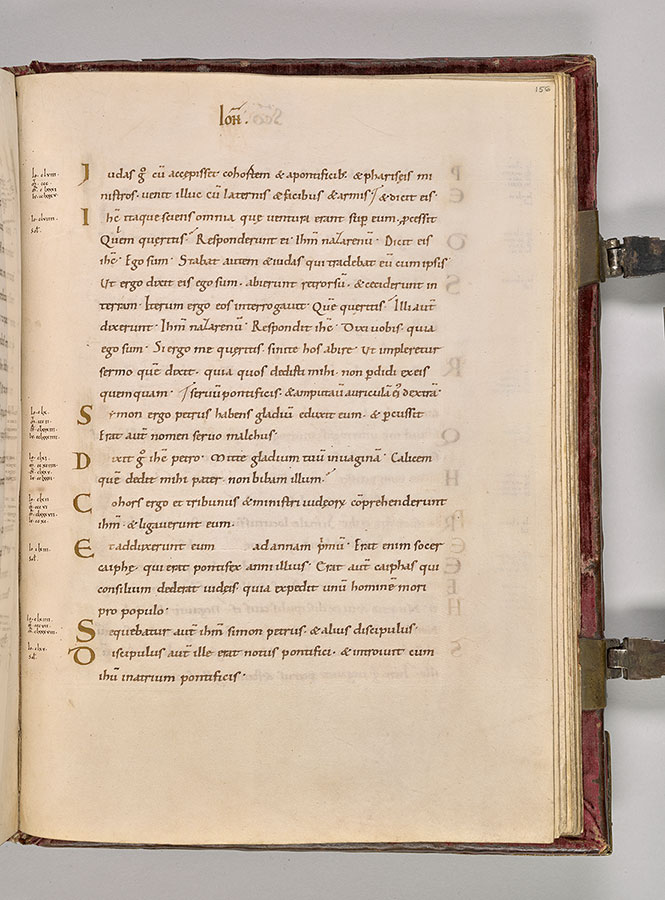 156
Ioh̄.
Iudas g̊ cū accepisset cohortem & apontificib; & phariseis mi
nistros. uenit illuc cū laternis & facibus & armis / & dicit eis.
Ihē itaque sciens omnia que uentura erant sup eum. p̱cessit
Quem queritis. Responderunt ei. Ihm̄ naZarenū. Dicit eis
ihē. Ego sum. Stabat autem & iudas qui tradebat eū cum ipsis
Ut ergo dixit eis ego sum. abierunt retrorsū. & ceciderunt in
terram. Iterum ergo eos interrogauit. Quē queritis. Illi aut̄
dixerunt. Ihm̄ naZarenū. Respondit ihē. Dixi uobis. quia
ego sum. Si ergo me queritis. sinite hos abire. Ut impleretur
sermo quē dixit. quia quos dedisti mihi. non p̱didi exeis
quemquam. / seruū pontificis. & amputauit auriculā ei᷒ dextrā.
Symon ergo petrus habens gladiū eduxit eum. & p̱cussit
Erat aut̄ nomen seruo malchus.
Dixit g̊ ihē petro. Mitte gladium tuū inuaginā. Calicem
quē dedit mihi pater. non bibam illum.
Cohors ergo et tribunus & ministri iudeoꝝ cōprehenderunt
ihm̄. & ligauerunt eum.
Et adduxerunt eum ad annam p̄mū. Erat enim socer
caiphe. qui erat pontifex anni illius. Erat aut̄ caiphas qui
consilium dederat iudeis. quia expedit unū hominē mori
pro populo.
Sequebatur aut̄ ihm̄ simon petrus. & alius discipulus.
Discipulus aut̄ ille erat notus pontifici. & introiuit cum
ihū inatrium pontificis.